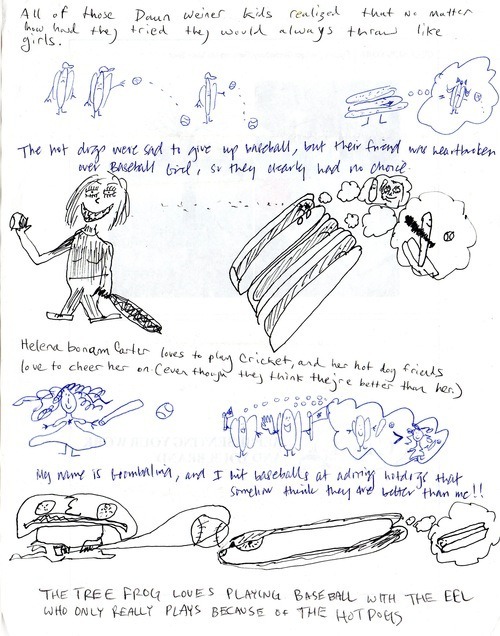 All of those Dawn Weiner kids realized that no matter
how hard they tried they would always throw like
girls.
The hot dogs were sad to give up baseball, but their friend was heartbroken
over Baseball Girl, so they clearly had no choice.
Helena bonam Carter loves to play Cricket, and her hot dog friends
love to cheer her on (even though they think they're better than her.)
My name is boomballina, and I hit baseballs at adoring hotdogs that
somehow think they are better than me!!
THE TREE FROG LOVES PLAYING BASEBALL WITH THE EEL
WHO ONLY REALLY PLAYS BECAUSE OF THE HOTDOGS